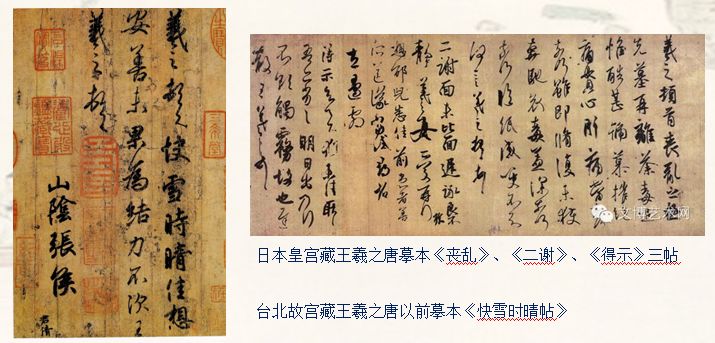 羲之頓首快雪時晴佳想
安善未果為結力不次王
羲之頓首
山陰張侯
君倩
羲之頓首喪亂之極
先墓再離荼毒追
惟酷甚號慕摧絕
痛貫心肝痛當奈何
奈何雖即脩復未獲
奔馳哀毒益深奈何
奈何臨紙感哽不知
何言羲之頓首頓首
二謝面未比面遲詠良不
靜羲之女愛再拜
想邵兒悉佳前患者善
所送議當試尋省
左邊劇
得示知足下猶未佳耿耿
吾亦劣劣明日出乃行
不欲觸霧故也遲
散王羲之頓首
文博艺术网
日本皇宫藏王羲之唐摹本《丧乱》、《二谢》、《得示》三帖
台北故宫藏王羲之唐以前摹本《快雪时晴帖》